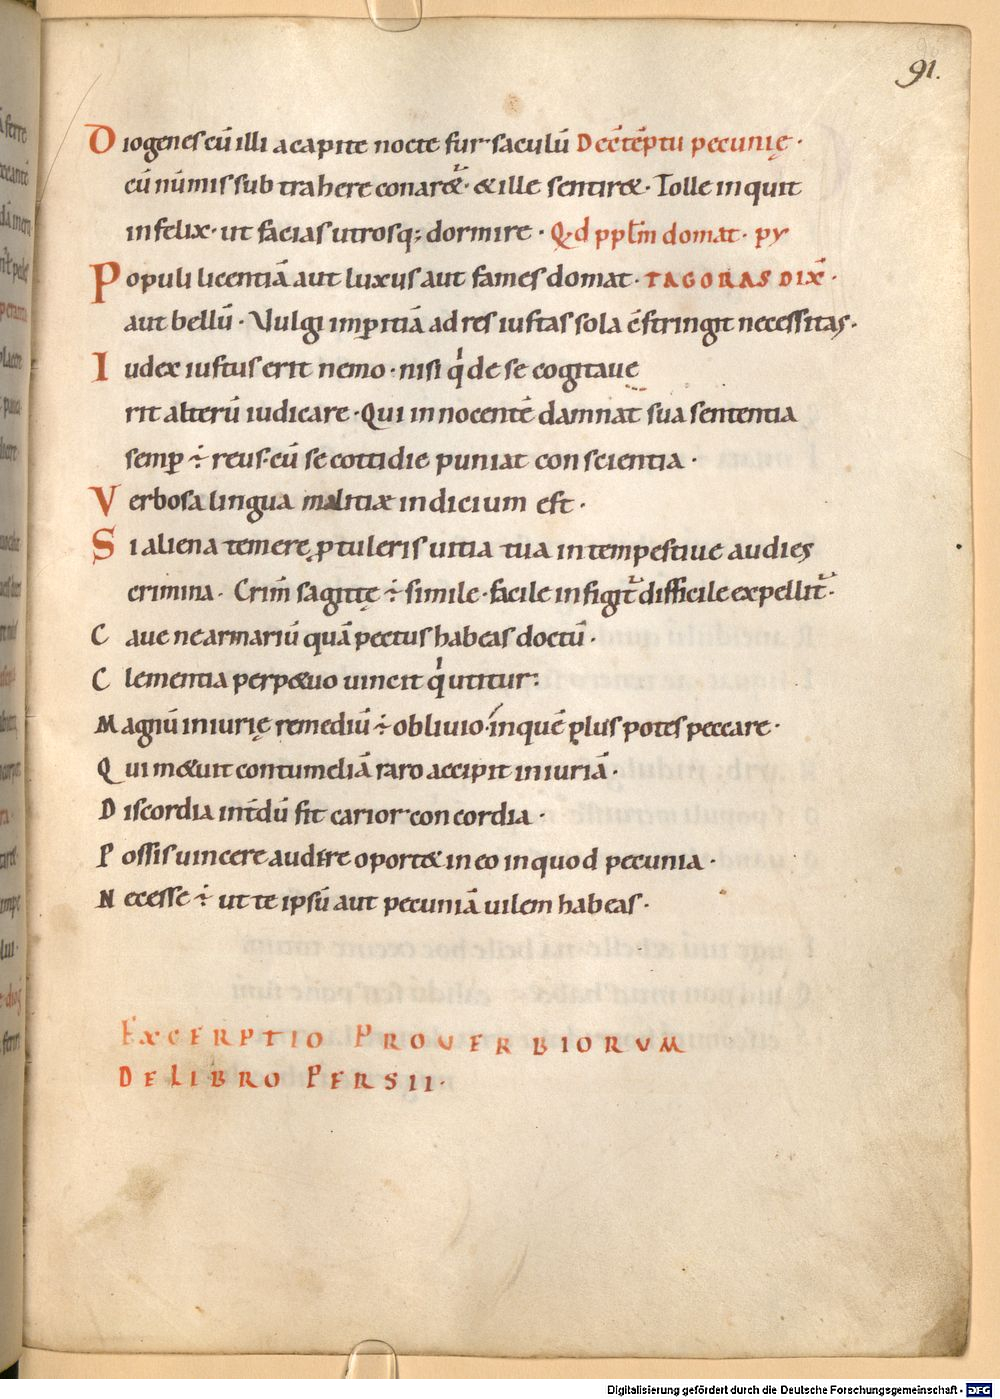 91.
Diogenes cū illi a capite nocte fur sacculū De cōtēptu pecunię·
cū nūmis subtrahere conaretur· & ille sentiret· Tolle inquit
infelix· ut facias utrosq; dormire· Qd pplm domat· py
Populi licentiā aut luxus aut fames domat· TAGORAS DIX̄·
aut bellū· Vulgi impitiā ad res iustas sola c̄stringit necessitas·
Iudex iustus erit nemo· nisi qi de se cogitaue
rit alterū iudicare· Qui innocentē damnat sua sententia
semp ÷ reus· cū se cottidie puniat conscientia·
Verbosa lingua malitiæ indicium est·
Si aliena temere ptuleris uitia tua intempestiue audies
crimina· Crim̄ sagittę ÷ simile· facile infigit᷑ difficile expellit᷑·
Caue ne armariū quā pectus habeas doctū·
Clementia perpetuo uincit qi utitur:
Magnū iniurię remediū ÷ obliuio· in quē plus potes peccare·
Qui metuit contumeliā raro accipit iniuriā·
Discordia int̄dū fit carior concordia·
Possis uincere audire oportet in eo in quod pecunia·
Necesse ÷ ut te ipsū aut pecuniā uilem habeas·
EXCERPTIO PROVERBIORVM
DE LIBRO PERSII·
Digitalisierung gefördert durch die Deutsche Forschungsgemeinschaft - DFG